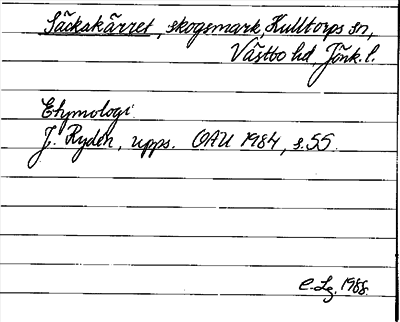 Säckakärret, skogsmark, Kulltorps sn,
Västbo hd, Jönk. l.
Etymologi
J. Rydén, upps. OAU 1984, s. 55.
C-Lg. 1988.